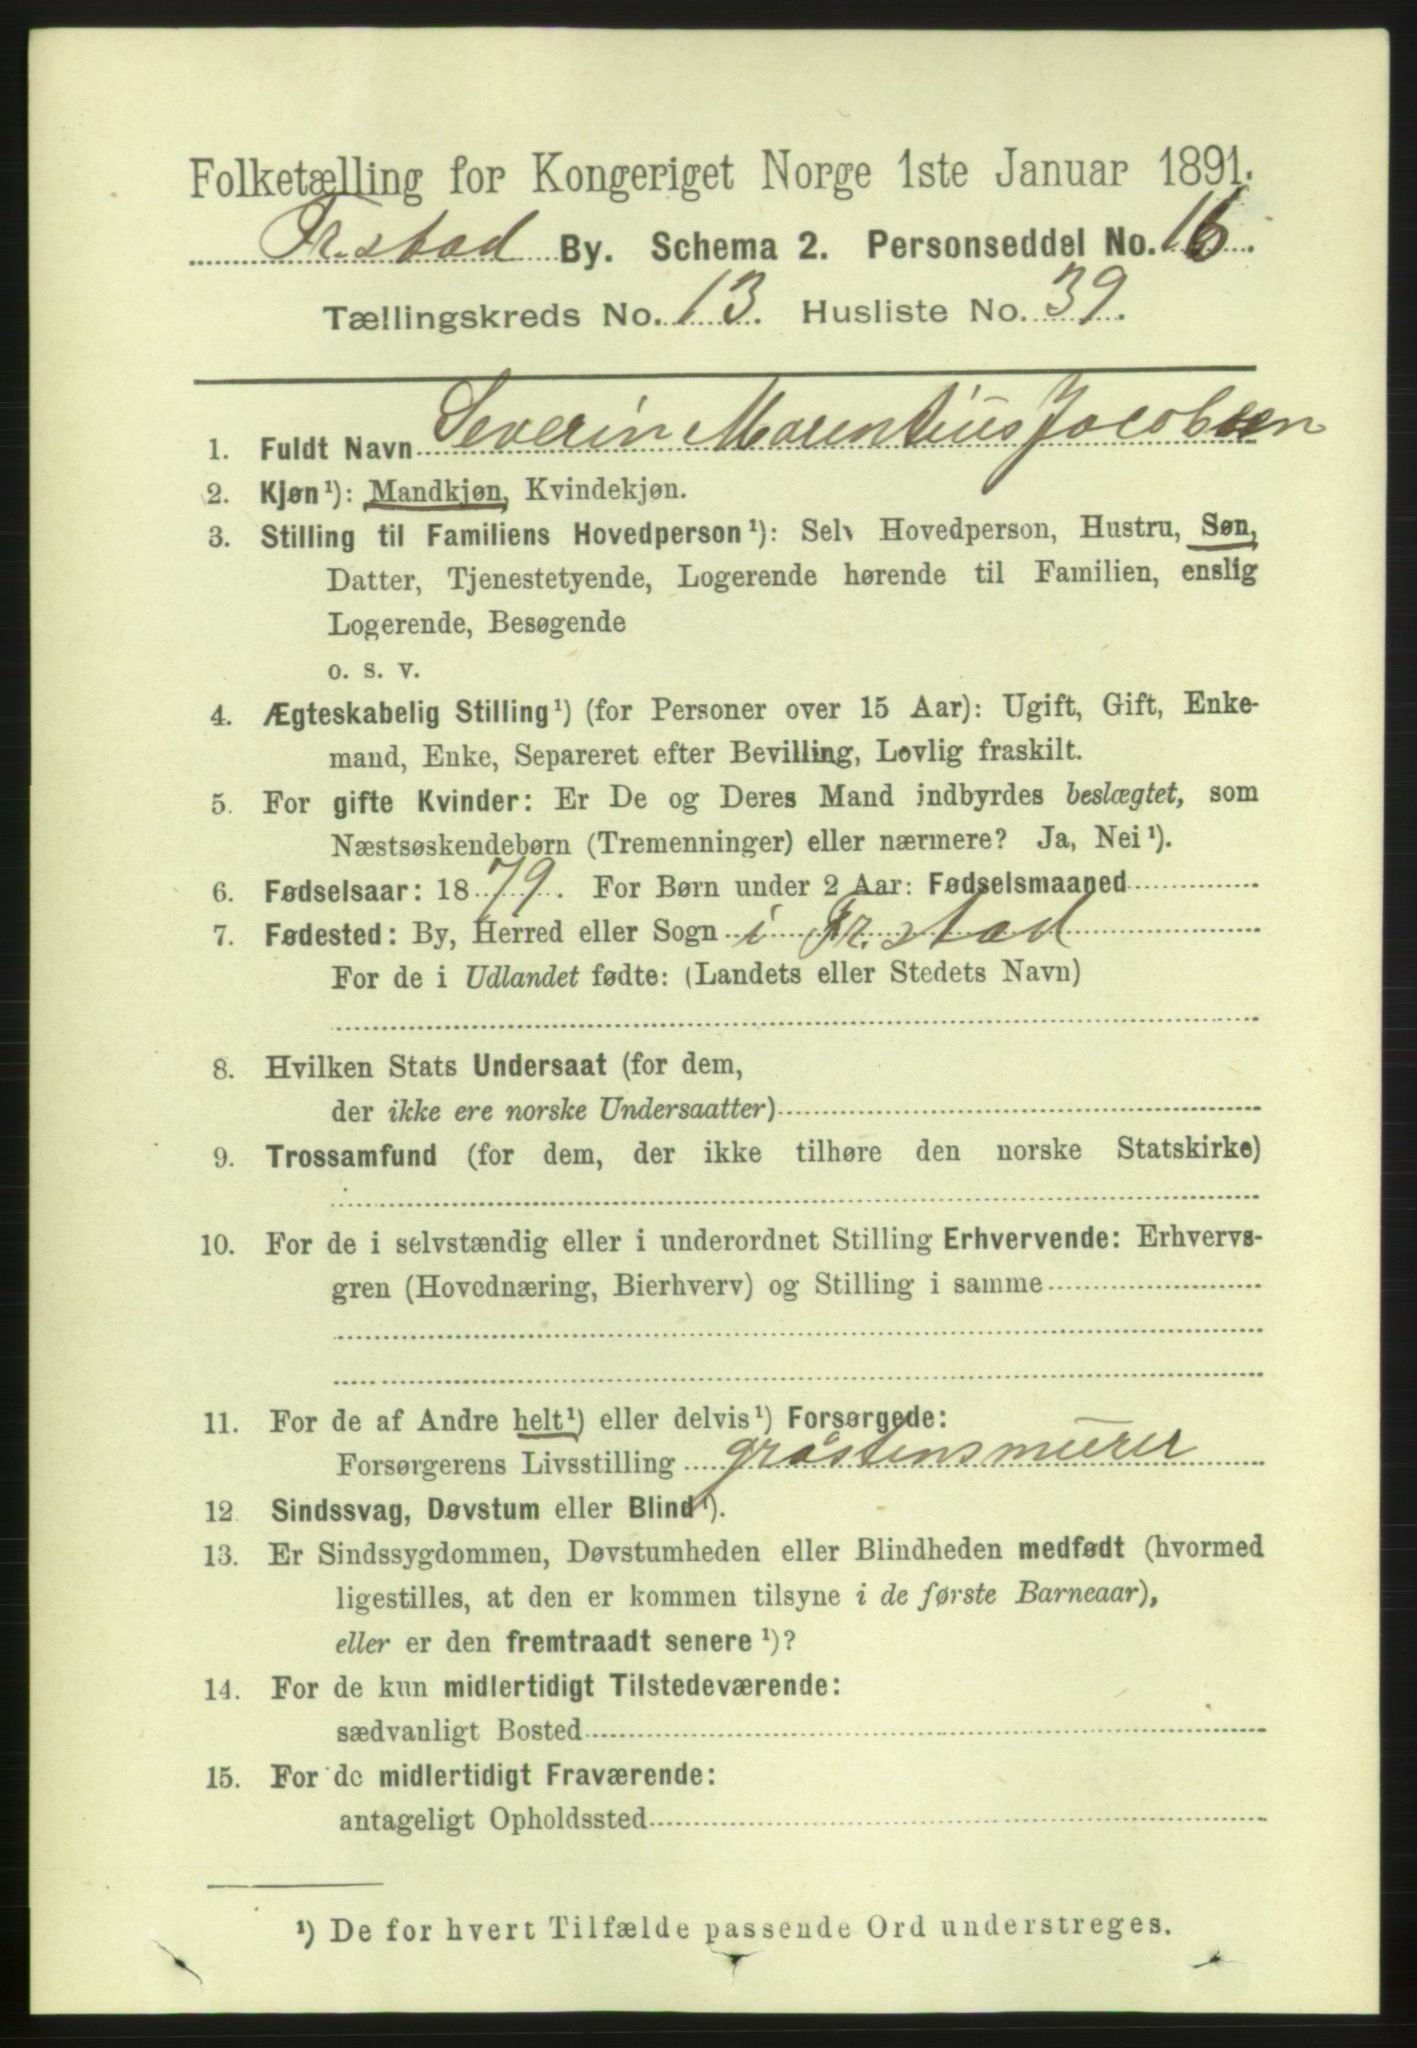 Folketælling for Kongeriget Norge 1ste Januar 1891.
Fr.stad By. Schema 2. Personseddel No. 16.
Tællingskreds No. 13. Husliste No. 39.
1. Fuldt Navn Severin Marentius Jacobsen
2. Kjøn¹): Mandkjøn, Kvindekjøn.
3. Stilling til Familiens Hovedperson¹): Selv Hovedperson, Hustru, Søn,
Datter, Tjenestetyende, Logerende hørende til Familien, enslig
Logerende, Besøgende
o. s. v.
4. Ægteskabelig Stilling¹) (for Personer over 15 Aar): Ugift, Gift, Enke-
mand, Enke, Separeret efter Bevilling, Lovlig fraskilt.
5. For gifte Kvinder: Er De og Deres Mand indbyrdes beslægtet, som
Næstsøskendebørn (Tremenninger) eller nærmere? Ja, Nei¹).
6. Fødselsaar: 1879. For Børn under 2 Aar: Fødselsmaaned
7. Fødested: By, Herred eller Sogn i Fr.stad
For de i Udlandet fødte: (Landets eller Stedets Navn)
8. Hvilken Stats Undersaat (for dem,
der ikke ere norske Undersaatter)
9. Trossamfund (for dem, der ikke tilhøre den norske Statskirke)
10. For de i selvstændig eller i underordnet Stilling Erhvervende: Erhvervs-
gren (Hovednæring, Bierhverv) og Stilling i samme
11. For de af Andre helt¹) eller delvis¹) Forsørgede:
Forsørgerens Livsstilling gråstensmurer
12. Sindssvag, Døvstum eller Blind¹).
13. Er Sindssygdommen, Døvstumheden eller Blindheden medfødt (hvormed
ligestilles, at den er kommen tilsyne i de første Barneaar),
eller er den fremtraadt senere¹)?
14. For de kun midlertidigt Tilstedeværende:
sædvanligt Bosted
15. For de midlertidigt Fraværende:
antageligt Opholdssted
¹) De for hvert Tilfælde passende Ord understreges.